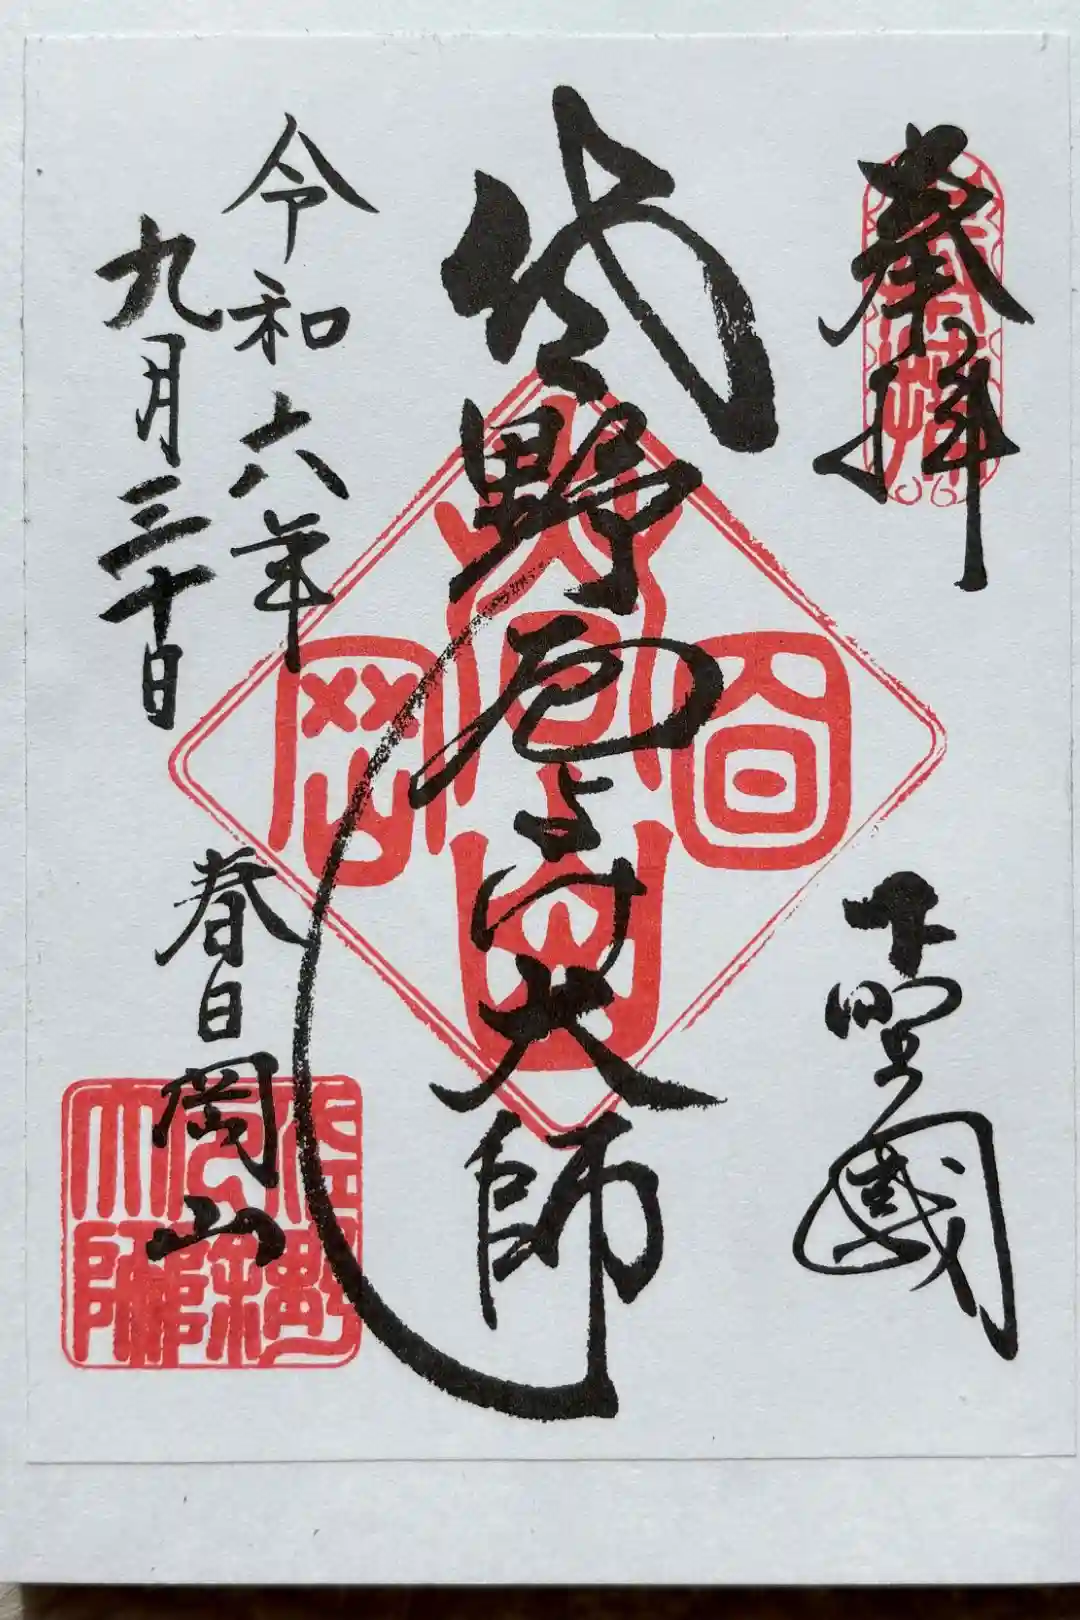 奉拝
06
下野國
佐野厄よけ大師
令和六年
九月三十日
春日岡山